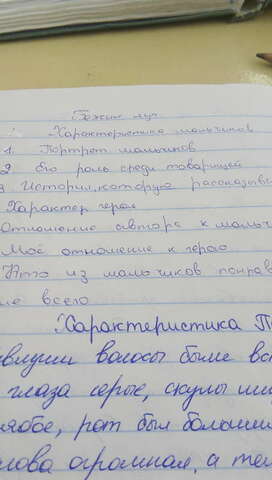 Бежин луг
Характеристика мальчиков
1. Портрет мальчиков
2 Его роль среди товарищей
3 История, которую рассказыв
Характер героя
Отношение автора к мальч
Моё отношение к герою
Кто из мальчиков понрав
всего
Характеристика П
волосы были вс
глаза серые, скулы ши
рябое, рот был больши
голова огромная, а тел